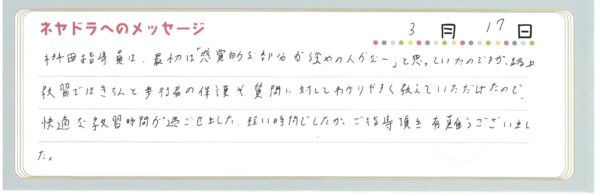 ネヤドラへのメッセージ
3月17日
林田指導員は、最初は「感覚的な部分が強めの人かなー」と思っていたのですが、路上
教習ではきちんと歩行者の保護や質問に対してわかりやすく教えていただけたので、
快適な教習時間が過ごせました。短い時間でしたが、ご指導頂き有難うございまし
た。